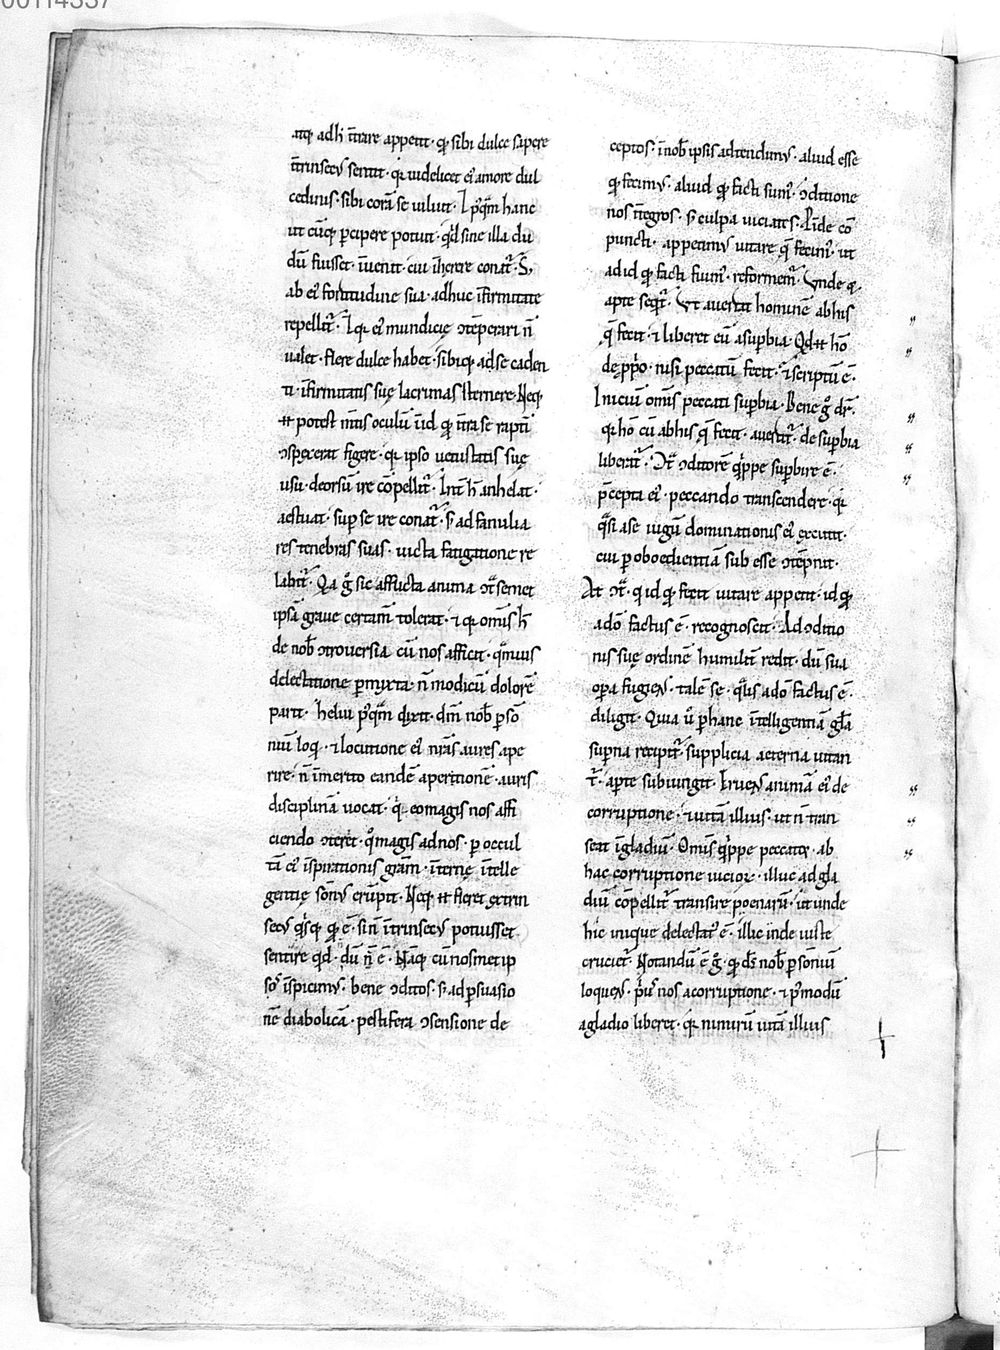 00114337
atq; adh̄ īt̄rare appetit · q̄ sibi dulce sapere
īt̄rinsecꝰ sentit · q̄ uidelicet eiꝰ amore dul
cedinis · sibi corā se uiluit · I pꝰq̄m hanc
ut cūq; p̲cipere potuit · qd̄ sine illa du
dū fuisset · īuenit · cui īherere conat̄ · S;
ab eiꝰ fortitudine sua · adhuc īfirmitate
repellit̄ · ⁊ q; eiꝰ mundicię ɔtēperari n̄
ualet · flere dulce habet · sibiq; ad se caden
ti · īfirmitatis suę lacrimas sternere · Neq;
eī potest m̄tis oculū īid q̄ īt̄ra se raptī
ɔspexerat figere · q̄ ipso uetustatis suę
usu · deorsū ire cōpellit̄ · Int̄ h̄ anhelat ·
aestuat · sup̲ se ire conat̄ · s̄ ad familia
res tenebras suas · uicta fatigatione re
labit̄ · Qa g̊ sic affecta anima ɔt̄ semet
ipsā graue certam̄ tolerat · ⁊ q; omīs h̄
de nob̄ ɔtrouersia cū nos afficit · q̄muis
delectatione p̲mixta · n̄ modicū dolorē
parit · heliu pꝰq̄m dixit · dm̄ nob̄ p̲ so
niū loqi · ⁊ locutione eiꝰ nr̄as aures ape
rire · n̄ īmerito eandē aperitionē · auris
disciplinā uocat · q̄ eo magis nos affi
ciendo ɔteret · q̊ magis ad nos · p̲ occul
tā eiꝰ īspirationis gr̄am · īternę ītelle
gentię sonꝰ erūpit · Neq; eī fleret extrin
secꝰ q̄sq; q̄ ē · si n̄ īt̄rinsecꝰ potuisset
sentire qd̄ · dū n̄ ē · Nāq; cū nosmet ip
soꝰ īspicimꝰ · bene ɔditos · s̄ ad p̲suasio
nē diabolicā · pestifera ɔsensione de
ceptos · īnob̄ ipsis adtendimꝰ · aliud esse
q̄ fecimꝰ · aliud q̄ facti sumꝰ · ɔditione
nos īt̄egros · s̄ culpa uiciatos · P̱īde cō
puncti · appetimꝰ uitare q̄ fecimꝰ · ut
ad id q̄ facti fuimꝰ · reformem̄ · Vnde ⁊
apte seqt̄ · Vt auertat hominē ab his
q̄ fecit · ⁊ liberet eū a sup̲bia · Qd eī hō
de pp̲o · nisi peccatū fecit · ⁊ scriptū ē ·
Iniciū omīs peccati sup̲bia · Bene g̊ dr̄ ·
q̄ hō cū ab his q̄ fecit · auertit̄ · de sup̲bia
liberat̄ · Ɔt̄ ɔditorē q̄ppe sup̲bire ē ·
p̄cepta eiꝰ · peccando transcendere · q̄
q̄si a se iugū dominationis eiꝰ excutit ·
cui p̲ oboedientiā sub esse ɔtēpnit ·
At ɔt̄ · q id q̄ fecit uitare appetit · id q̄
a dō factus ē · recognoscit · Ad ɔditio
nis suę ordinē humilit̄ redit · dū sua
op̲a fugiens · talē se · q̄lis a dō factus ē ·
diligit · Quia u̇ p̲ hanc ītelligentiā gl̄a
sup̲na recipit̄ · supplicia aeterna uitan
t̄ · ap̲te subiungit · Eruens animā eiꝰ de
corruptione · ⁊ uitā illius · ut n̄ tran
seat ī gladiū · Omīs q̄ppe peccator̄ · ab
hac corruptione uicior̄ · illuc ad gla
diū cōpellit̄ transire poenarū · ut unde
hic inique delectatꝰ ē · illic inde iuste
crucietꝰ · Notandū ē g̊ · q̄ ds̄ nob̄ p̲ somniū
loquens · p̄ꝰ nos a corruptione · ⁊ p̲modū
a gladio liberet · q̄ nimirū uitā illius